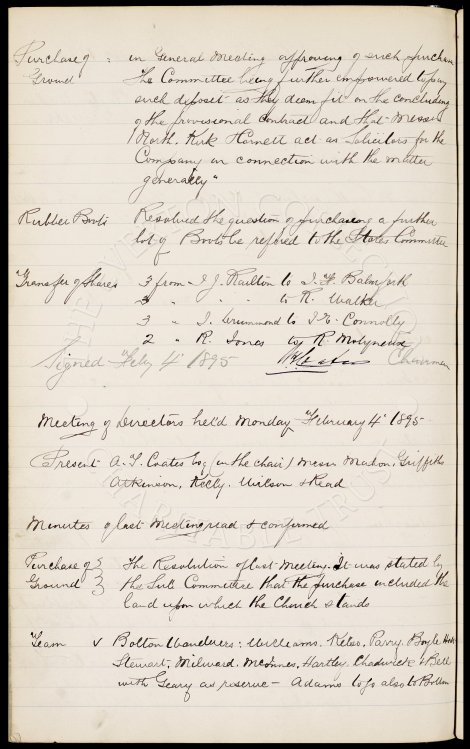 Purchase of : in General Meeting approving of such purchase
Ground the Committee being further empowered to pay
such deposit as they deem fit on the concluding
of the provisional contract and that Messrs
North. Kirk Hornett act as Solicitors for the
Company in connection with the matter
generally"
Rubber Boots Resolved the question of purchasing a further
lot of Boots be refered to the States Committee
Transfer of Shares 3 from I J. Railton to J. F. Balmforth
3 " " " to R. Walker
3 " J. Drummond to J. E. Connolly
2 " R. Jones to R. Molyneux
Signed Feby 4 1895 Chairman
Meeting of Directors held Monday February 4 1895
Present A. T. Coates Esq (in the chair) Messrs Mahon, Griffiths
Atkinson, Kelly. Wilson & Read
Minutes of last Meeting read & confirmed
Purchase of } The Resolution of last Meeting. It was stated by
Ground } the Sub Committee that the purchase included the
land upon which the Church stands
Team v Bolton Wanderers: Williams. Kelso, Parry. Boyle
Stewart, Milward. McInnes, Hartley. Chadwick & Bell
with Geary as reserve - Adams to go also to Bolton
THE EVERTON COLLECTION
CHARITABLE TRUST